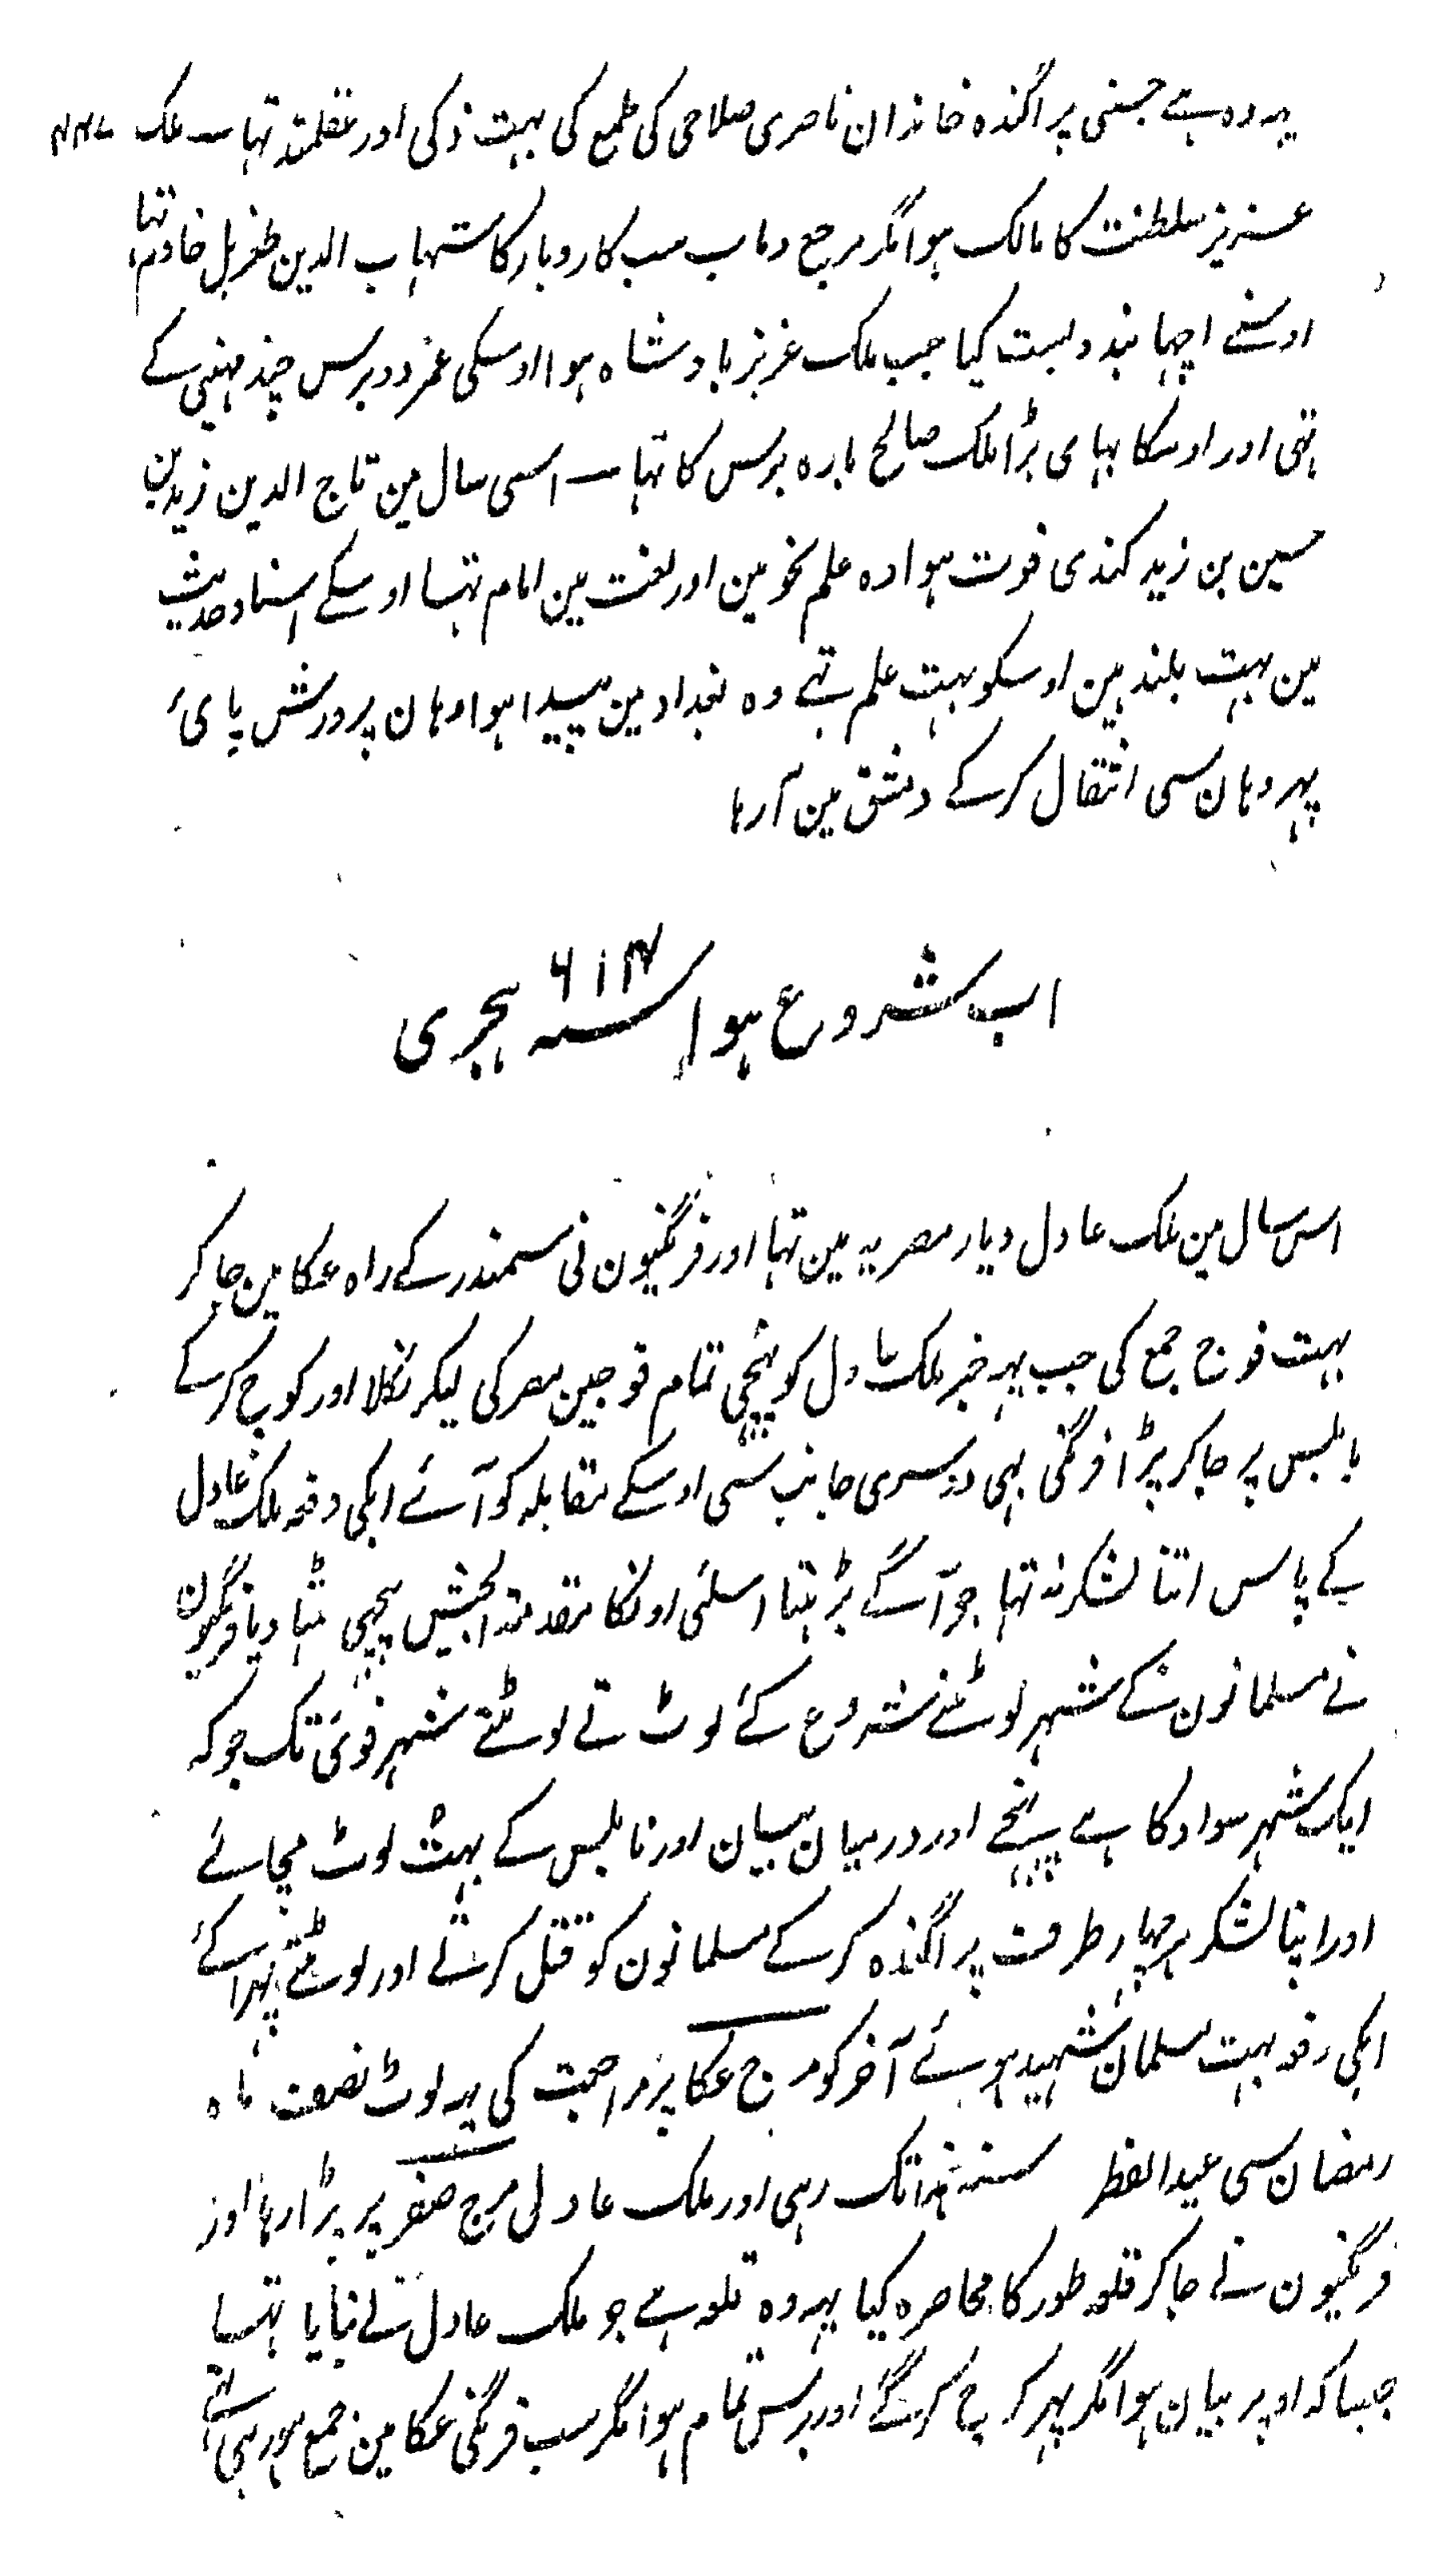 یہ وہ ہے جسنی پراگندہ خاندان ناصری صلاحی کی طمع کی بہت ذکی اور عقلمند تہا ــ ملک
عزیز سلطنت کا مالک ہوا مگر مرجع و ماب سب کاروبار کا شہاب الدین طغریل خادم تہا
اوسنے اچہا بندوبست کیا جب ملک عزیز بادشاہ ہوا اوسکی عمر دو برس چند مہینی کے
تہی اور اوسکا بہای بڑا ملک صالح بارہ برس کا تہا ــ اسی سال مین تاج الدین زید بن
حسین بن زید کندی فوت ہوا وہ علم نحو مین اور لغت مین امام تہا اوسکے اسناد حدیث
مین بہت بلند ہین اوسکو بہت علم تہے وہ بغداد مین پیدا ہوا وہان پرورش پائ
پہر وہان سی انتقال کرکے دمشق مین آ رہا
اب شروع ہوا سنہ ۶۱۴ ہجری
اس سال مین ملک عادل دیار مصریہ مین تہا اور فرنگیون نی سمندر کے راہ عکا مین جا کر
بہت فوج جمع کی جب یہہ خبر ملک عادل کو پہنچی تمام فوجین مصر کی لیکر نکلا اور کوچ کرکے
نابلس پر جا کر پڑا فرنگی بہی دوسری جانب سی اوسکے مقابلہ کو آئے ابکی دفعہ ملک عادل
کے پاس اتنا لشکر نہ تہا جو آگے بڑہتا اسلئی اونکا مقدمۃ الجیش پیچہی ہٹا دیا فرنگیون
نے مسلمانون کے شہر لوٹنے شروع کئے لوٹتے لوٹتے شہر نوی تک جو کہ
ایک شہر سواد کا ہے پہنچے اور درمیان بیسان اور نابلس کے بہت لوٹ مچائے
اور اپنا لشکر ہر چہار طرف پراگندہ کرکے مسلمانون کو قتل کرتے اور لوٹتے پہرا کے
ابکی دفعہ بہت مسلمان شہید ہوئے آخر کو مرج عکا پر مراجعت کی یہ لوٹ نصف ماہ
رمضان سی عید الفطر سنہ ہذا تک رہی اور ملک عادل مرج صفر پر پڑا رہا اور
فرنگیون نے جا کر قلعہ طور کا محاصرہ کیا یہہ وہ قلعہ ہے جو ملک عادل نے بنایا تہا
جیسا کہ اوپر بیان ہوا مگر پہر کوچ کر گئے اور برس تمام ہوا مگر سب فرنگی عکا مین جمع ہو رہی تہے